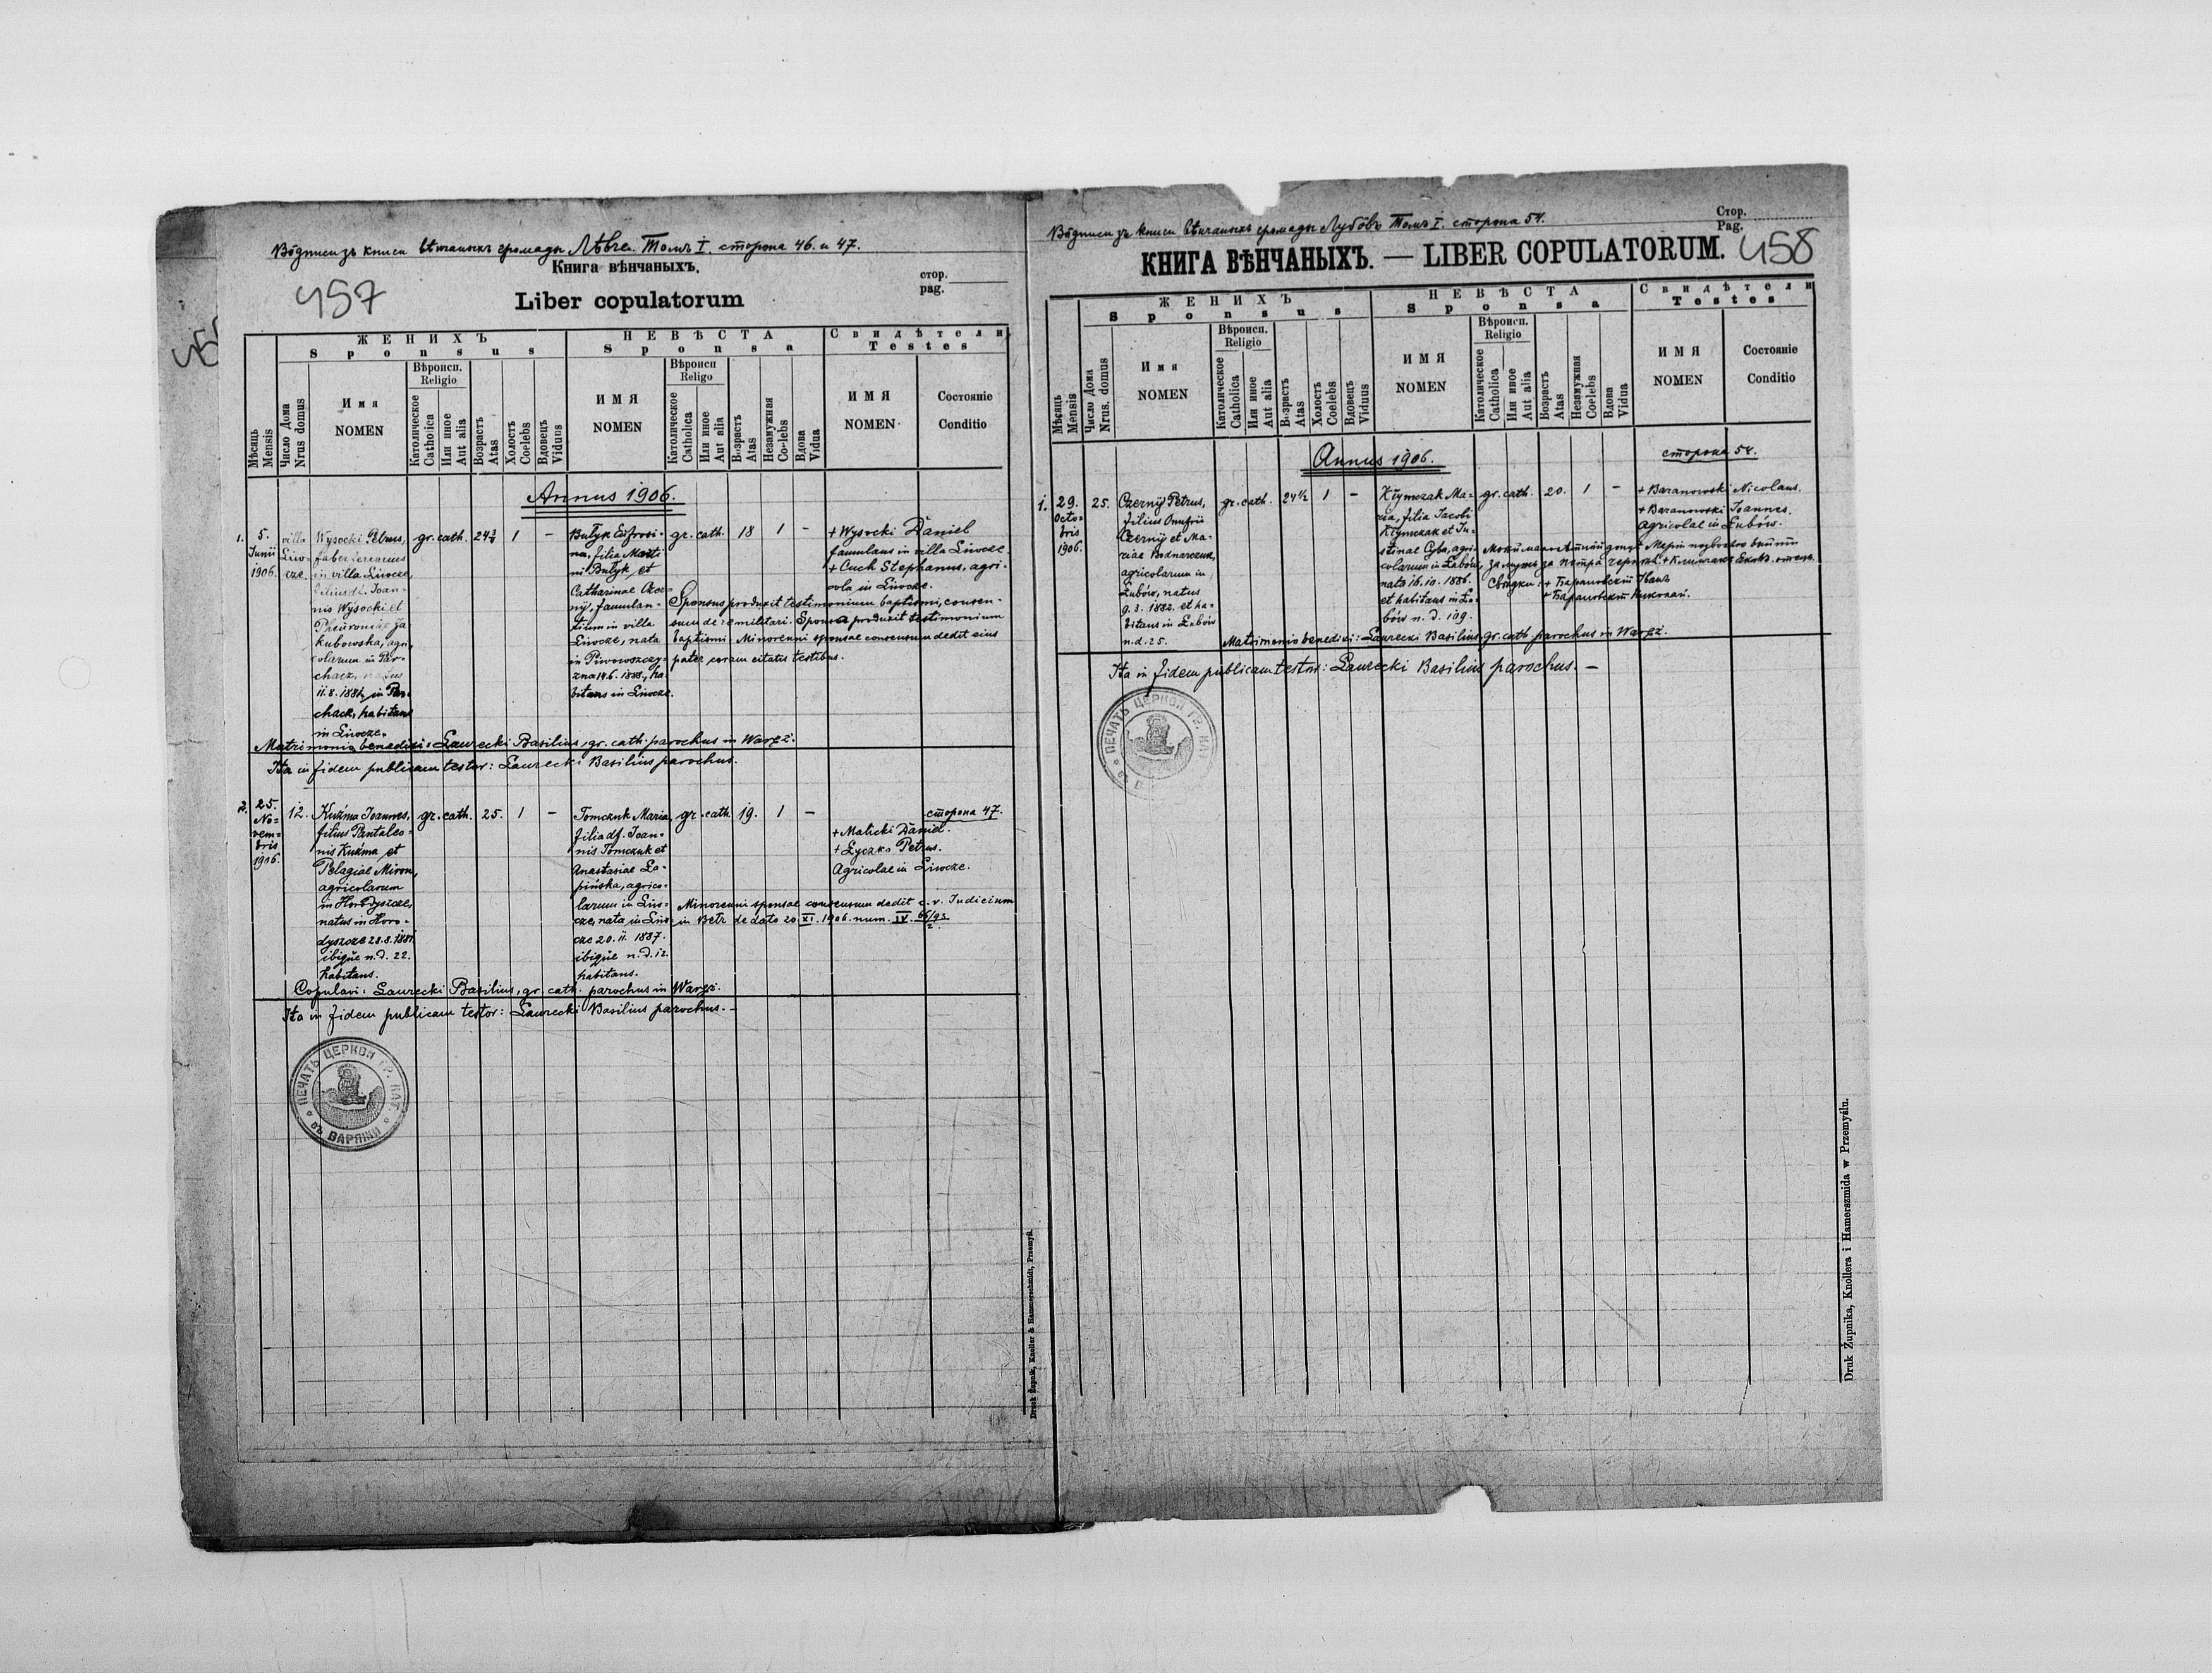 Вôдписи зъ книги вѣнчаныхъ громады Лѣвче. Томъ I. сторона 46. и 47.
457
Книга вѣнчаныхъ.
Liber copulatorum
стор.
pag.
ЖЕНИХЪ
Sponsus
НЕВѢСТА
Sponsa
Свидѣтели
Testes
Мѣсяць
Mensis
Число Дома
Nrus domus
Имя
NOMEN
Вѣроисп.
Religio
Католическое
Catholica
Или иное
Aut alia
Возрастъ
Atas
Холостъ
Coelebs
Вдовецъ
Viduus
ИМЯ
NOMEN
Вѣроисп
Religo
Католическое
Catholica
Или иное
Aut alia
Возрастъ
Atas
Незамужная
Co-lebs
Вдова
Vidua
ИМЯ
NOMEN
Состояніе
Conditio
Annus 1906.
1.
5.
Junii
1906.
villa
Liwo-
cze.
Wysocki Petrus,
faber ferrarius
in villa Liwcze,
filius df. Joan-
nis Wysocki et
Ja-
kubowska, agri-
colarum in Par-
chacz, natus
11.8.1881, in Par-
chacz, habitans
in Liwcze.
gr. cath.
24 3/4
1
–
Butyk Eufrosi-
na, filia Marti-
ni Butyk, et
Catharinae
famulan-
tium in villa
Liwcze, nata
in Piwowszczy-
zna 14.6.1888, ha-
bitans in Liwcze.
gr. cath.
18
1
–
+ Wysocki Daniel
famulans in villa Liwcze.
+ Cuch Stephanus, agri-
cola in Liwcze.
Sponsus produxit testimonium baptismi, consen-
sum de re militari. Sponsa produxit testimonium
baptismi. Minorenni sponsae consensum dedit eius
pater coram citatis testibus.
Matrimonio benedixi: Laurecki Basilius, gr. cath. parochus in Waręż.
Ita in fidem publicam testor: Laurecki Basilius parochus.
2.
25.
No-
vem-
bris
1906.
12.
Kuźma Joannes,
filius Pantaleo-
nis Kuźma et
Pelagiae Miron,
agricolarum
in Horodyszcze,
natus in Horo-
dyszcze 28.8.1881.
ibique n.d. 22.
habitans.
gr. cath.
25.
1
–
Tomczuk Maria,
filia df. Joan-
nis Tomczuk et
Anastasiae Ła-
pińska, agrico-
larum in Liw-
cze, nata in Liw-
cze 20. 11. 1887.
ibique n.d. 12.
habitans.
gr. cath.
19.
1
–
сторона 47.
+ Malicki Daniel.
+ Łyczko Petrus.
Agricolae in Liwcze.
Minorenni sponsae consensum dedit c. r. Judicium
in Bełz de dato 20 XI. 1906. num. IV.
Copulavi: Laurecki Basilius, gr. cath. parochus in Waręż.
Ita in fidem publicam testor: Laurecki Basilius parochus. –
ПЕЧАТЬ ЦЕРКОВ ГР. КАТ. въ ВАРЯЖИ
Druck Żupnik, Knoller & Hammerschmidt, Przemyśl.
Вôдписи зъ книги вѣнчаныхъ громады Лубôвъ Томъ I. сторона 54.
Стор.
Pag.
КНИГА ВѢНЧАНЫХЪ. — LIBER COPULATORUM.
458
ЖЕНИХЪ
Sponsus
НЕВѢСТА
Sponsa
Свидѣтели
Testes
Мѣсяць
Mensis
Число Дома
Nrus. domus
Имя
NOMEN
Вѣроисп.
Religio
Католическое
Catholica
Или иное
Aut alia
Возрастъ
Atas
Холостъ
Coelebs
Вдовецъ
Viduus
ИМЯ
NOMEN
Вѣроисп.
Religio
Католическое
Catholica
Или иное
Aut alia
Возрастъ
Atas
Незамужная
Coelebs
Вдова
Vidua
ИМЯ
NOMEN
Состояніе
Conditio
Annus 1906.
сторона 54.
1.
29.
Octo-
bris
1906.
25.
Czernij Petrus,
filius Onufrii
Czernij et Ma-
riae Bednarczuk,
agricolarum in
Łubów, natus
9. 3. 1882. et ha-
bitans in Łubów
n.d. 25.
gr. cath.
24 1/2
1
–
Kłymczak Ma-
ria, filia Jacobi
Kłymczak et Ju-
stinae Cybo, agri-
colarum in Łubów,
nata 16. 10. 1886.
et habitans in Łu-
bów n. d. 109.
gr. cath.
20.
1
–
+ Baranowski Nicolaus.
+ Baranowski Joannes.
Agricolae in Łubów.
Моѣй малолѣтнôй доцѣ Маріи позволяю выйти
замужъ за Петра Чернія. + Климчакъ Яковъ отець.
Свѣдки: + Барановскій Иванъ
+ Барановскій Николай.
Matrimonio benedixi: Laurecki Basilius, gr. cath parochus in Waręż.
Ita in fidem publicam testor: Laurecki Basilius parochus. –
ПЕЧАТЬ ЦЕРКОВ ГР. КА
Druk Żupnika, Knollera i Hamerszmida w Przemyślu.